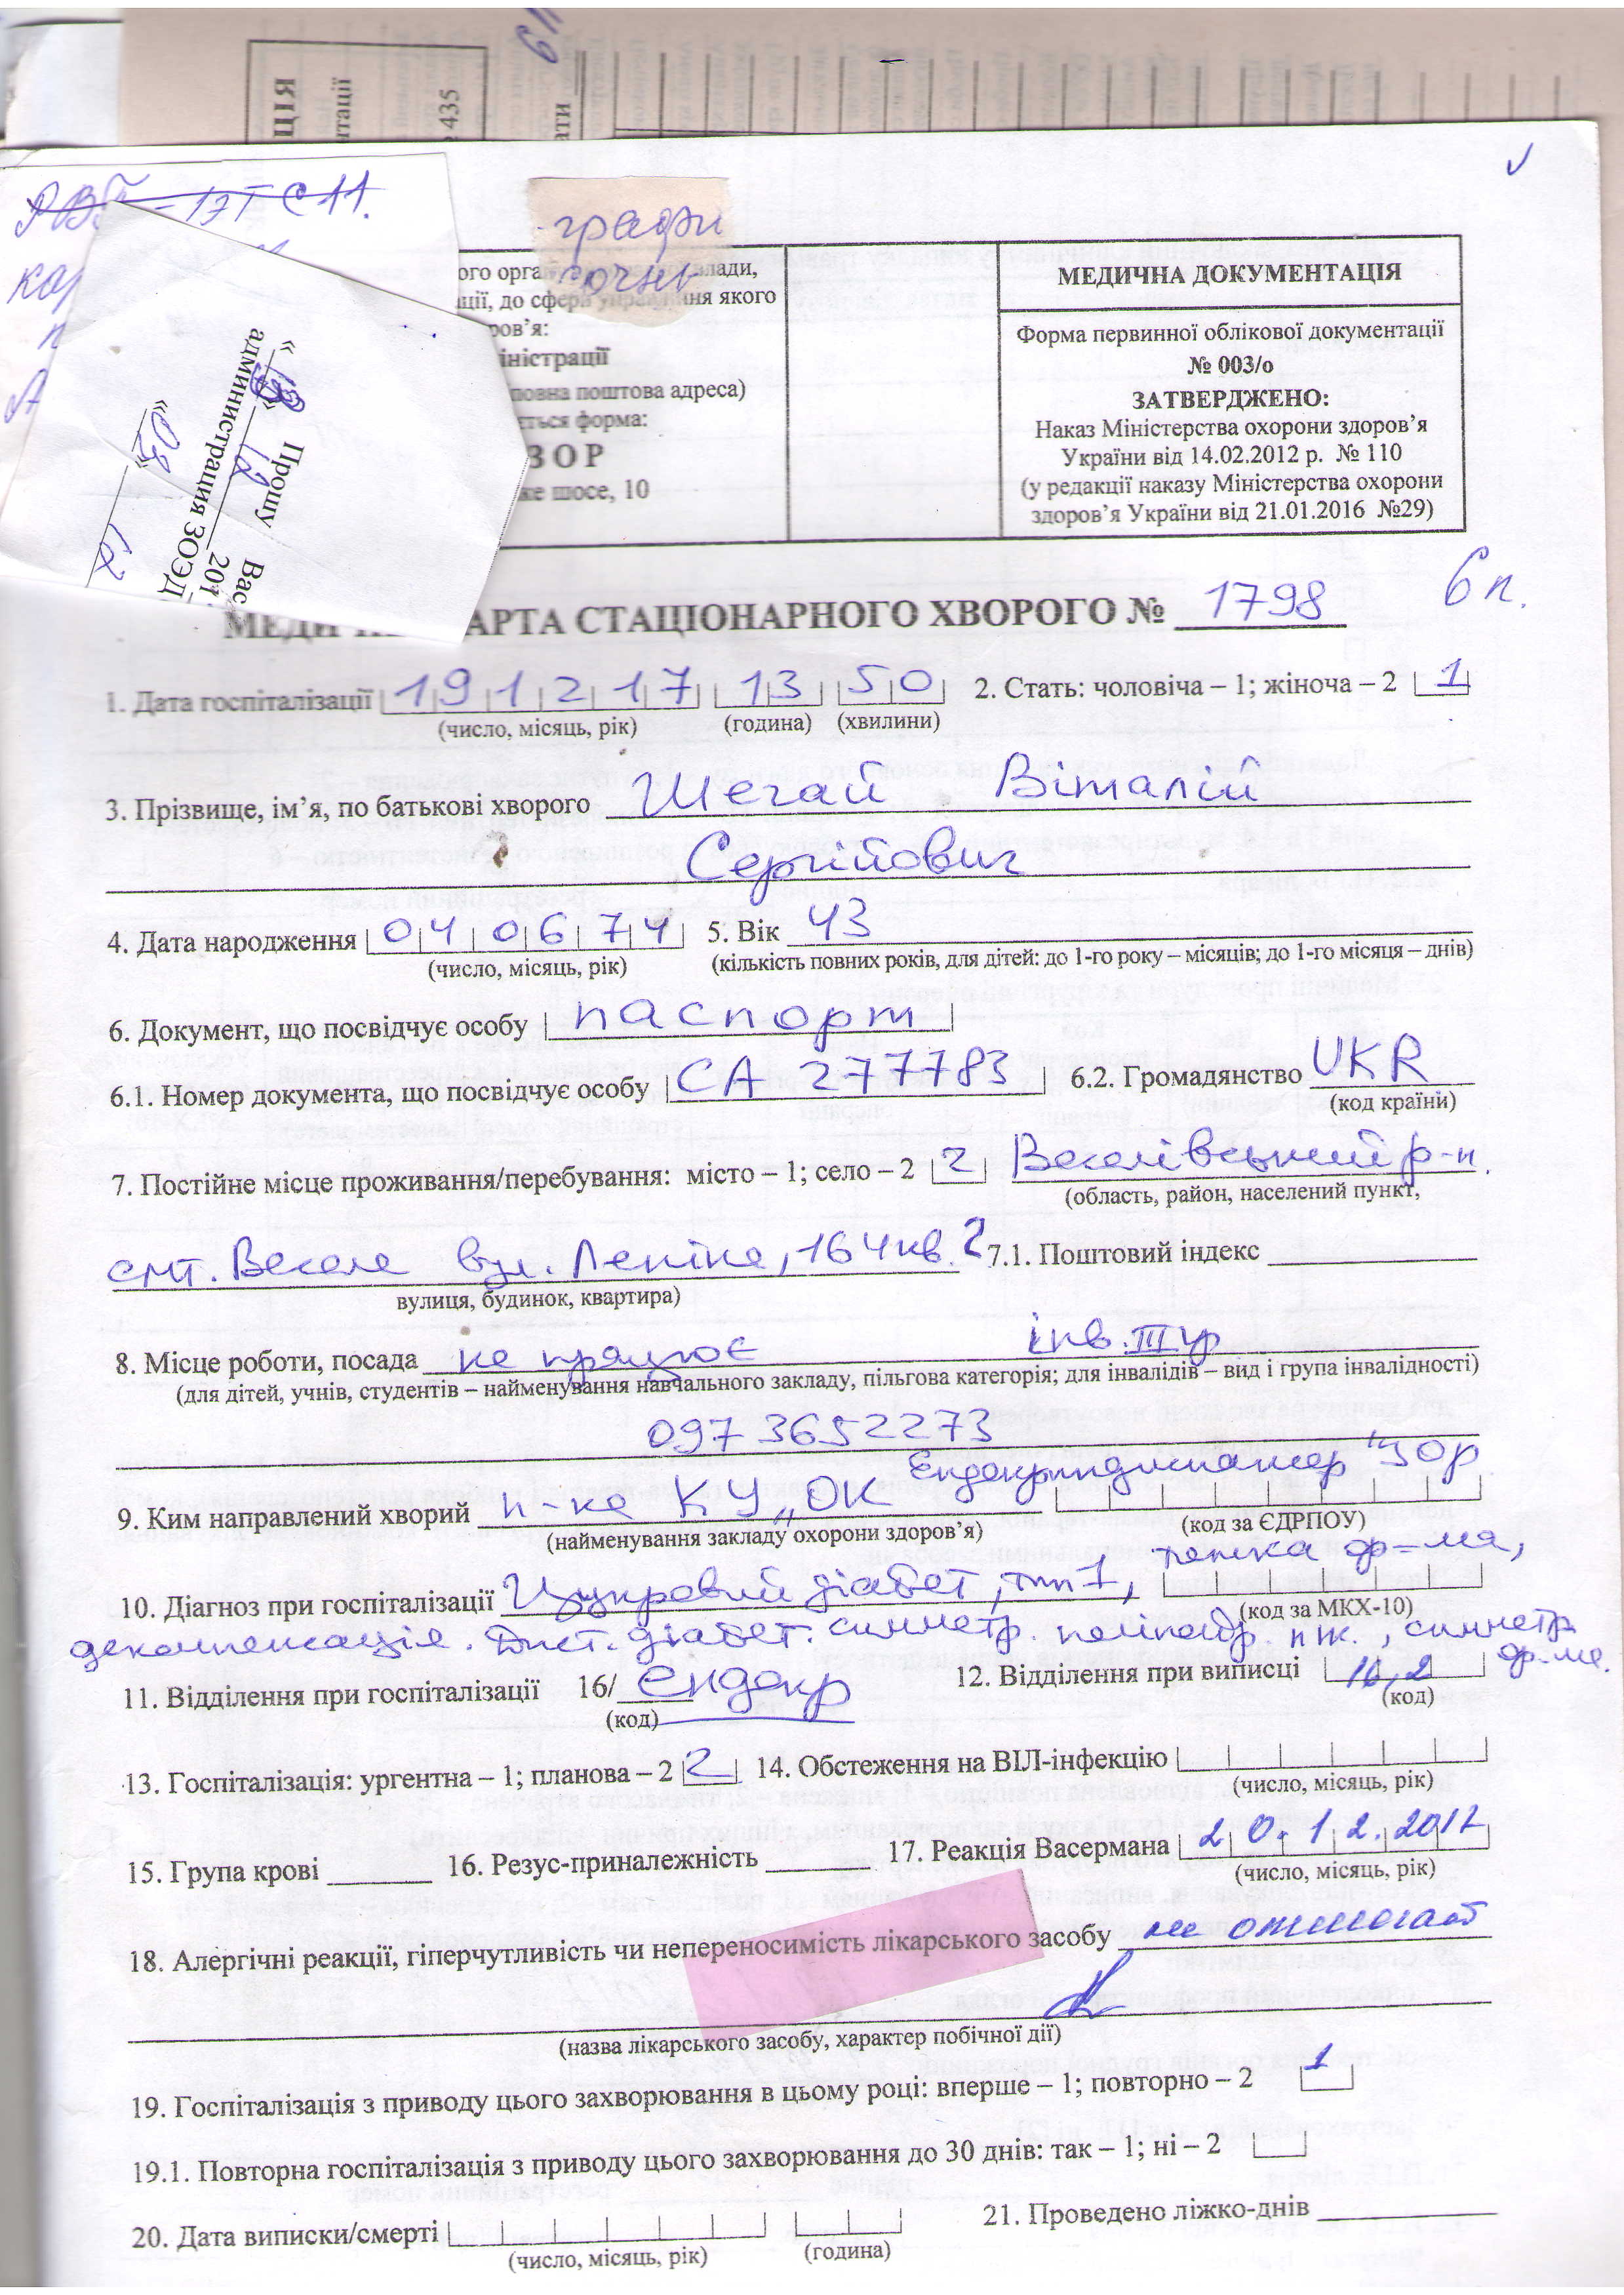 ЦІЯ
нтації
435
ати
графи
точны
РВГ - 13Т С 11.
« 19 » 12 201
Прошу Вас
администрация ЗОЭД
« 09 » 12
ого орга лади,
ції, до сфери управління якого
ров’я:
іністрації
повна поштова адреса)
ється форма:
З О Р
ке шосе, 10
МЕДИЧНА ДОКУМЕНТАЦІЯ
Форма первинної облікової документації
№ 003/о
ЗАТВЕРДЖЕНО:
Наказ Міністерства охорони здоров’я
України від 14.02.2012 р. № 110
(у редакції наказу Міністерства охорони
здоров’я України від 21.01.2016 №29)
6 п.
МЕДИ АРТА СТАЦІОНАРНОГО ХВОРОГО № 1798
1. Дата госпіталізації 19 12 17 13 50 2. Стать: чоловіча – 1; жіноча – 2 1
(число, місяць, рік) (година) (хвилини)
3. Прізвище, ім’я, по батькові хворого Шегай Віталій
Сергійович
4. Дата народження 04 06 74 5. Вік 43
(число, місяць, рік) (кількість повних років, для дітей: до 1-го року – місяців; до 1-го місяця – днів)
6. Документ, що посвідчує особу паспорт
6.1. Номер документа, що посвідчує особу СА 277783 6.2. Громадянство UKR
(код країни)
7. Постійне місце проживання/перебування: місто – 1; село – 2 2 Веселівський р-н.
(область, район, населений пункт,
смт. Веселе вул. Леніна, 164 кв. 2 7.1. Поштовий індекс
вулиця, будинок, квартира)
8. Місце роботи, посада не працює інв. III гр
(для дітей, учнів, студентів – найменування навчального закладу, пільгова категорія; для інвалідів – вид і група інвалідності)
097 3652273
9. Ким направлений хворий п-ка КУ „ОК Ендокриндиспансер" ЗОР
(найменування закладу охорони здоров’я) (код за ЄДРПОУ)
10. Діагноз при госпіталізації Цукровий діабет, тип 1, тяжка ф-ма,
(код за МКХ-10)
декомпенсація. Дист. діабет. симетр. полінейр. н/к., симетр.
ф-ма.
11. Відділення при госпіталізації 16/ ендокр 12. Відділення при виписці 16,2
(код) (код)
13. Госпіталізація: ургентна – 1; планова – 2 2 14. Обстеження на ВІЛ-інфекцію
(число, місяць, рік)
15. Група крові 16. Резус-приналежність 17. Реакція Васермана 20.12.2017
(число, місяць, рік)
18. Алергічні реакції, гіперчутливість чи непереносимість лікарського засобу не отмечает
(назва лікарського засобу, характер побічної дії)
19. Госпіталізація з приводу цього захворювання в цьому році: вперше – 1; повторно – 2 1
19.1. Повторна госпіталізація з приводу цього захворювання до 30 днів: так – 1; ні – 2
20. Дата виписки/смерті 21. Проведено ліжко-днів
(число, місяць, рік) (година)